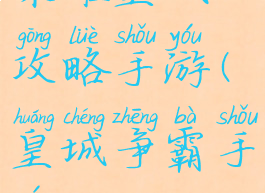 gōng lüè shǒu yóu
攻略手游(
huáng chéng zhēng bà shǒu
皇城争霸手